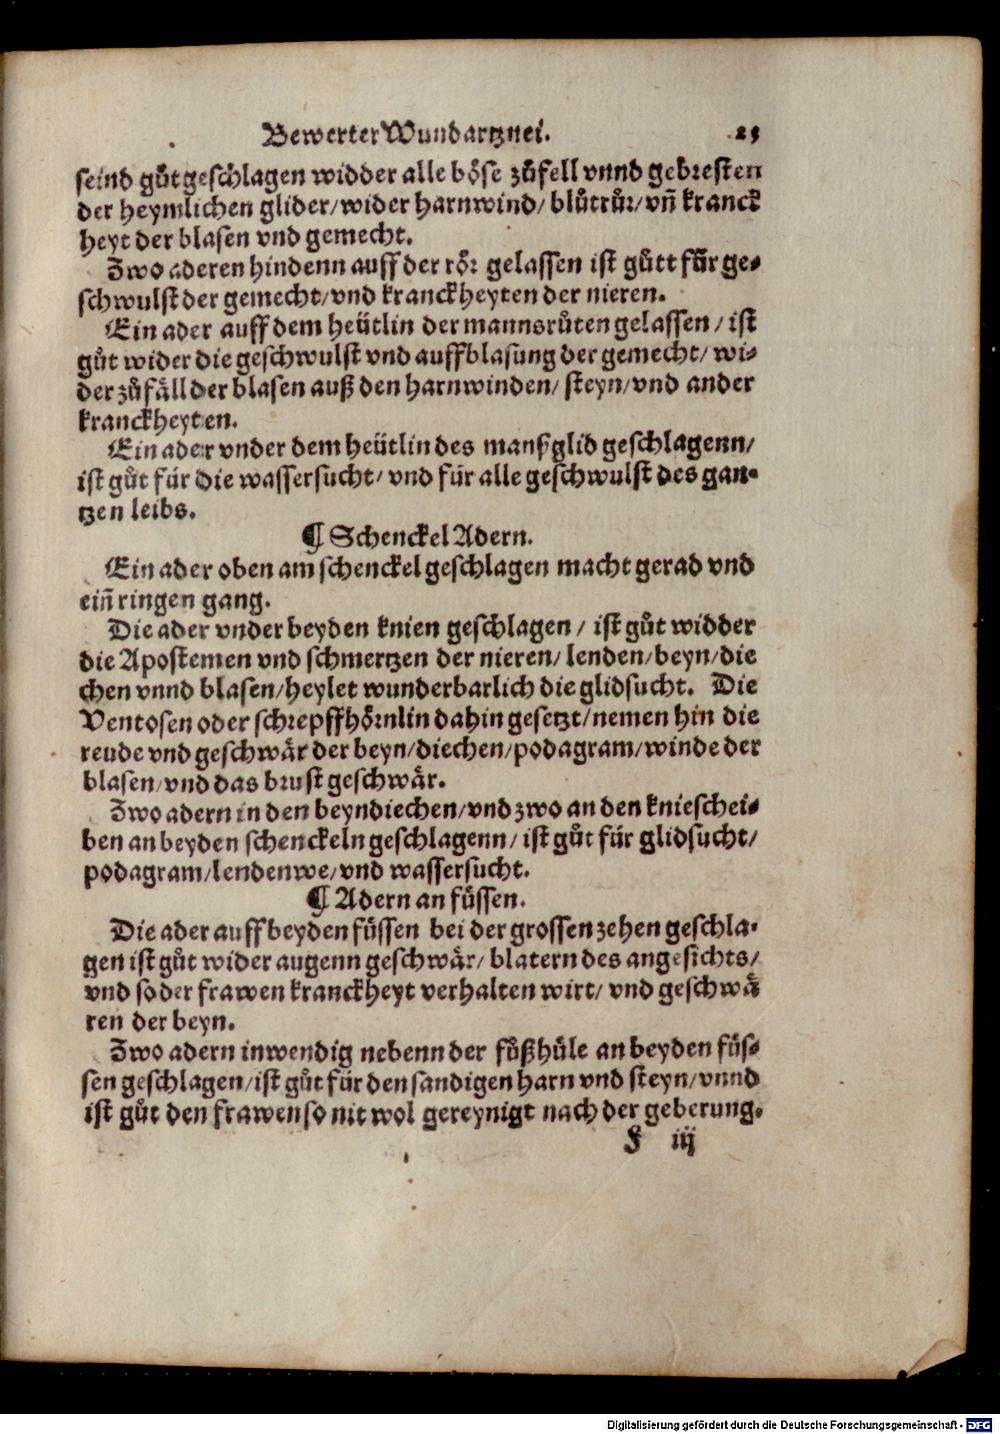 Bewerter Wundartznei. 23
seind gůt geschlagen widder alle böse zůfell vnnd gebresten
der heymlichen glider/ wider harnwind/ blůtrůr/ vñ kranck
heyt der blasen vnd gemecht.
Zwo aderen hindenn auff der rör gelassen ist gůtt für ge-
schwulst der gemecht/ vnd kranckheyten der nieren.
Ein ader auff dem heütlin der mannsrůten gelassen / ist
gůt wider die geschwulst vnd auffblasung der gemecht/ wi-
der zůfäll der blasen auß den harnwinden/ steyn/ vnd ander
kranckheyten.
Ein ader vnder dem heütlin des manßglid geschlagenn/
ist gůt für die wassersucht/ vnd für alle geschwulst des gan-
tzen leibs.
¶ Schenckel Adern.
Ein ader oben am schenckel geschlagen macht gerad vnd
eiñ ringen gang.
Die ader vnder beyden knien geschlagen / ist gůt widder
die Apostemen vnd schmertzen der nieren/ lenden/ beyn/ die
chen vnnd blasen/ heylet wunderbarlich die glidsucht. Die
Ventosen oder schrepffhörnlin dahin gesetzt/ nemen hin die
reude vnd geschwär der beyn/ diechen/ podagram/ winde der
blasen/ vnd das brust geschwär.
Zwo adern in den beyndiechen/ vnd zwo an den knieschei-
ben an beyden schenckeln geschlagenn / ist gůt für glidsucht/
podagram/ lendenwe/ vnd wassersucht.
¶ Adern an füssen.
Die ader auff beyden füssen bei der grossen zehen geschla-
gen ist gůt wider augenn geschwär/ blatern des angesichts/
vnd so der frawen kranckheyt verhalten wirt/ vnd geschwä
ren der beyn.
Zwo adern inwendig nebenn der fůßhüle an beyden füs-
sen geschlagen/ ist gůt für den sandigen harn vnd steyn/ vnnd
ist gůt den frawen so nit wol gereynigt nach der geberung.
F iij
Digitalisierung gefördert durch die Deutsche Forschungsgemeinschaft - DFG